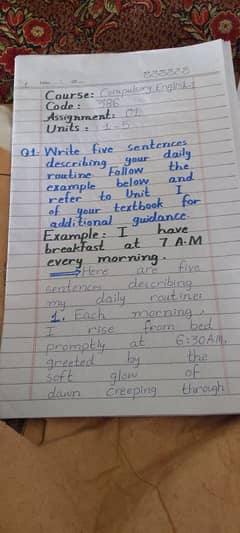 Course: Compulsory English-1
Code : 386
Assignment: 01
Units : 1-5
Q1: Write five sentences
describing your daily
routine Follow the
example below and
refer to Unit I
of your textbook for
additional guidance.
Example: I have
breakfast at 7 A.M
every morning.
Here are five
sentences describing
my daily routine:
1. Each morning,
I rise from bed
promptly at 6:30AM,
greeted by the
soft glow of
dawn creeping through